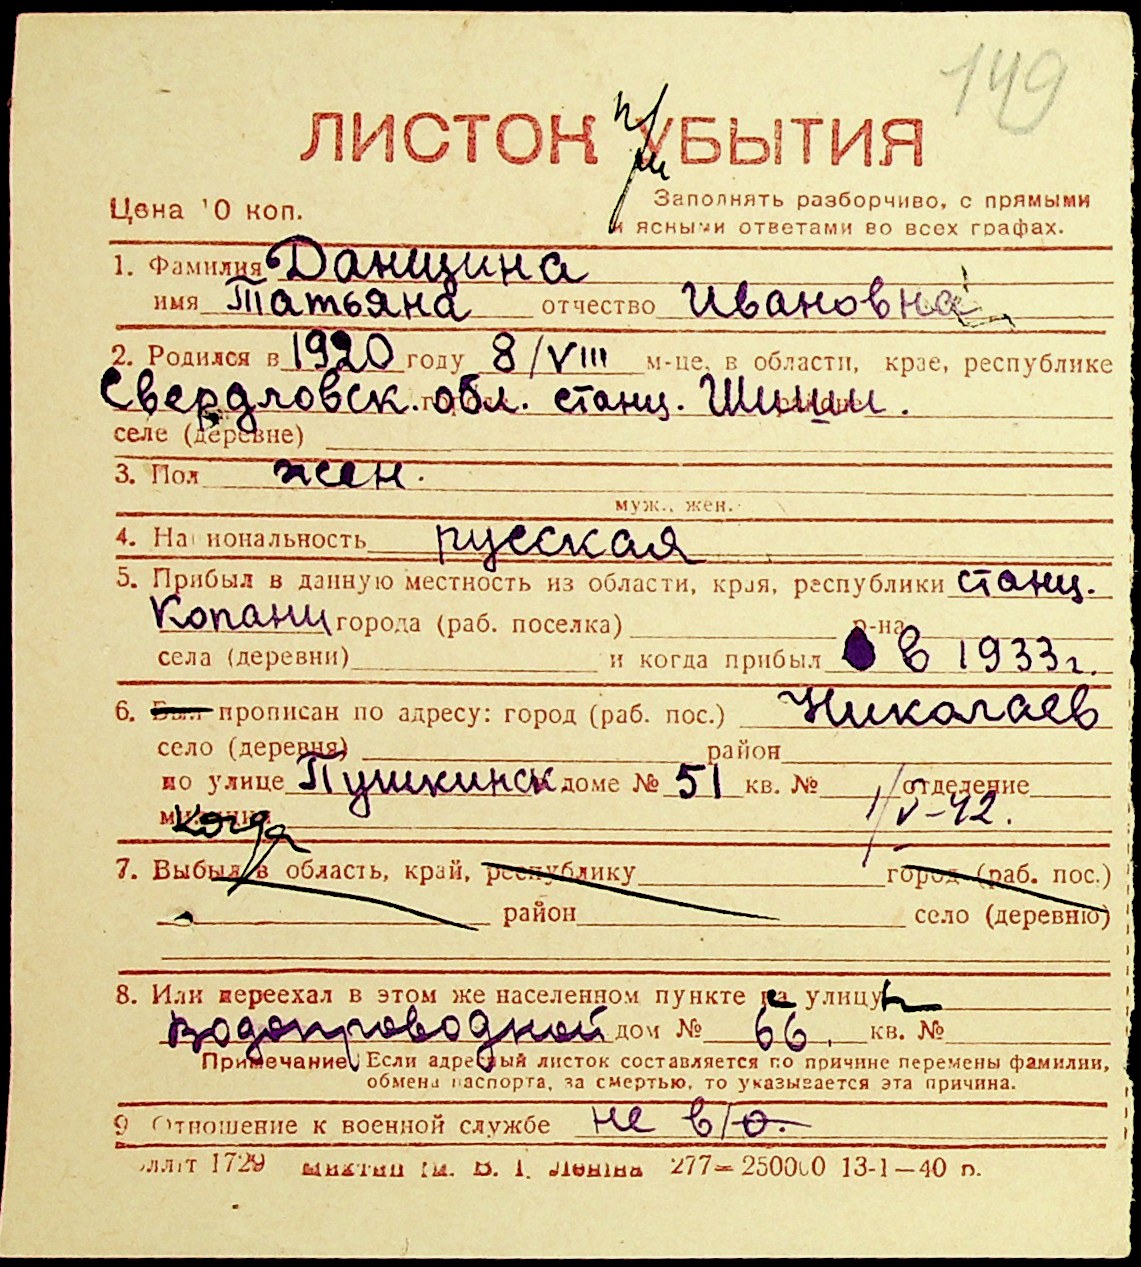 149
ЛИСТОК УБЫТИЯ
при
Цена 10 коп.
Заполнять разборчиво, с прямыми
и ясными ответами во всех графах.
1. Фамилия Данщина
имя Татьяна отчество Ивановна
2. Родился в 1920 году 8/VIII м-це, в области, крае, республике
Свердловск. обл. станц. Шиши.
селе (деревне)
3. Пол жен.
муж., жен.
4. Национальность русская
5. Прибыл в данную местность из области, края, республики станц.
Копани города (раб. поселка) р-на
села (деревни) и когда прибыл в 1933 г.
6. Был прописан по адресу: город (раб. пос.) Николаев
село (деревня) район
по улице Пушкинск доме № 51 кв. № отделение
милиции 1/V-42.
Когда
7. Выбыл в область, край, республику город (раб. пос.)
район село (деревню)
8. Или переехал в этом же населенном пункте на улицу
Водопроводной дом № 66. кв. №
Примечание: Если адресный листок составляется по причине перемены фамилии,
обмена паспорта, за смертью, то указывается эта причина.
9 Отношение к военной службе не в/о.
1729 277— 250000 13-1—40 р.